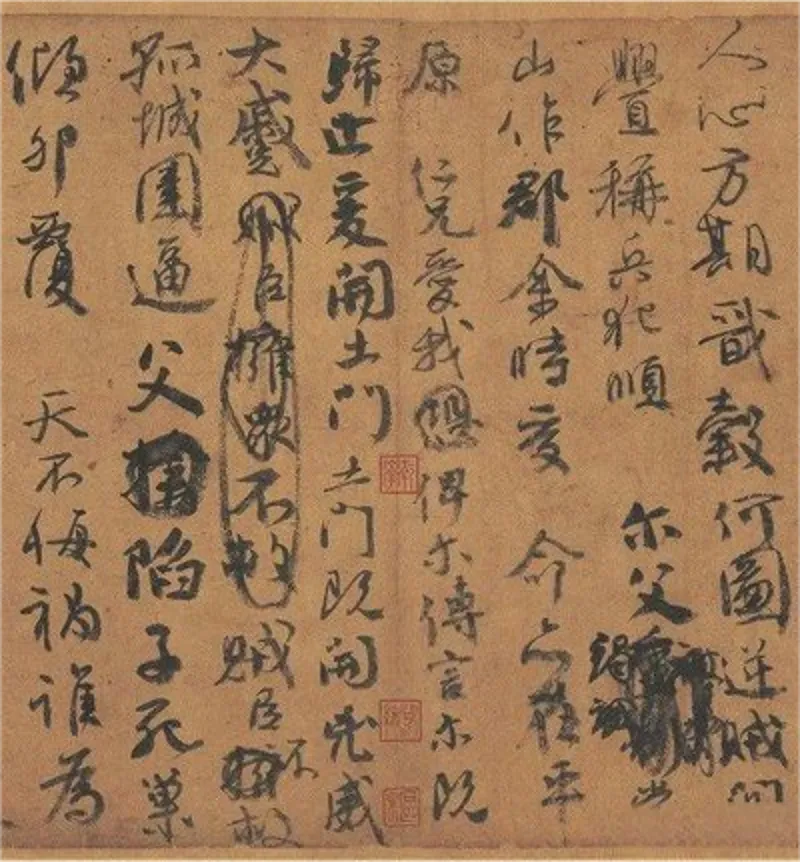 人心方期戩穀何圖逆賊間
釁稱兵犯順 尓父竭誠常
山作郡余時受 命亦在平
原 仁兄愛我恐俾尓傳言尓既
歸止爰開土門土門既開凶威
大蹙賊臣擁衆不救賊臣不救
孤城圍逼父陷子死巢
傾卵覆 天不悔禍誰為